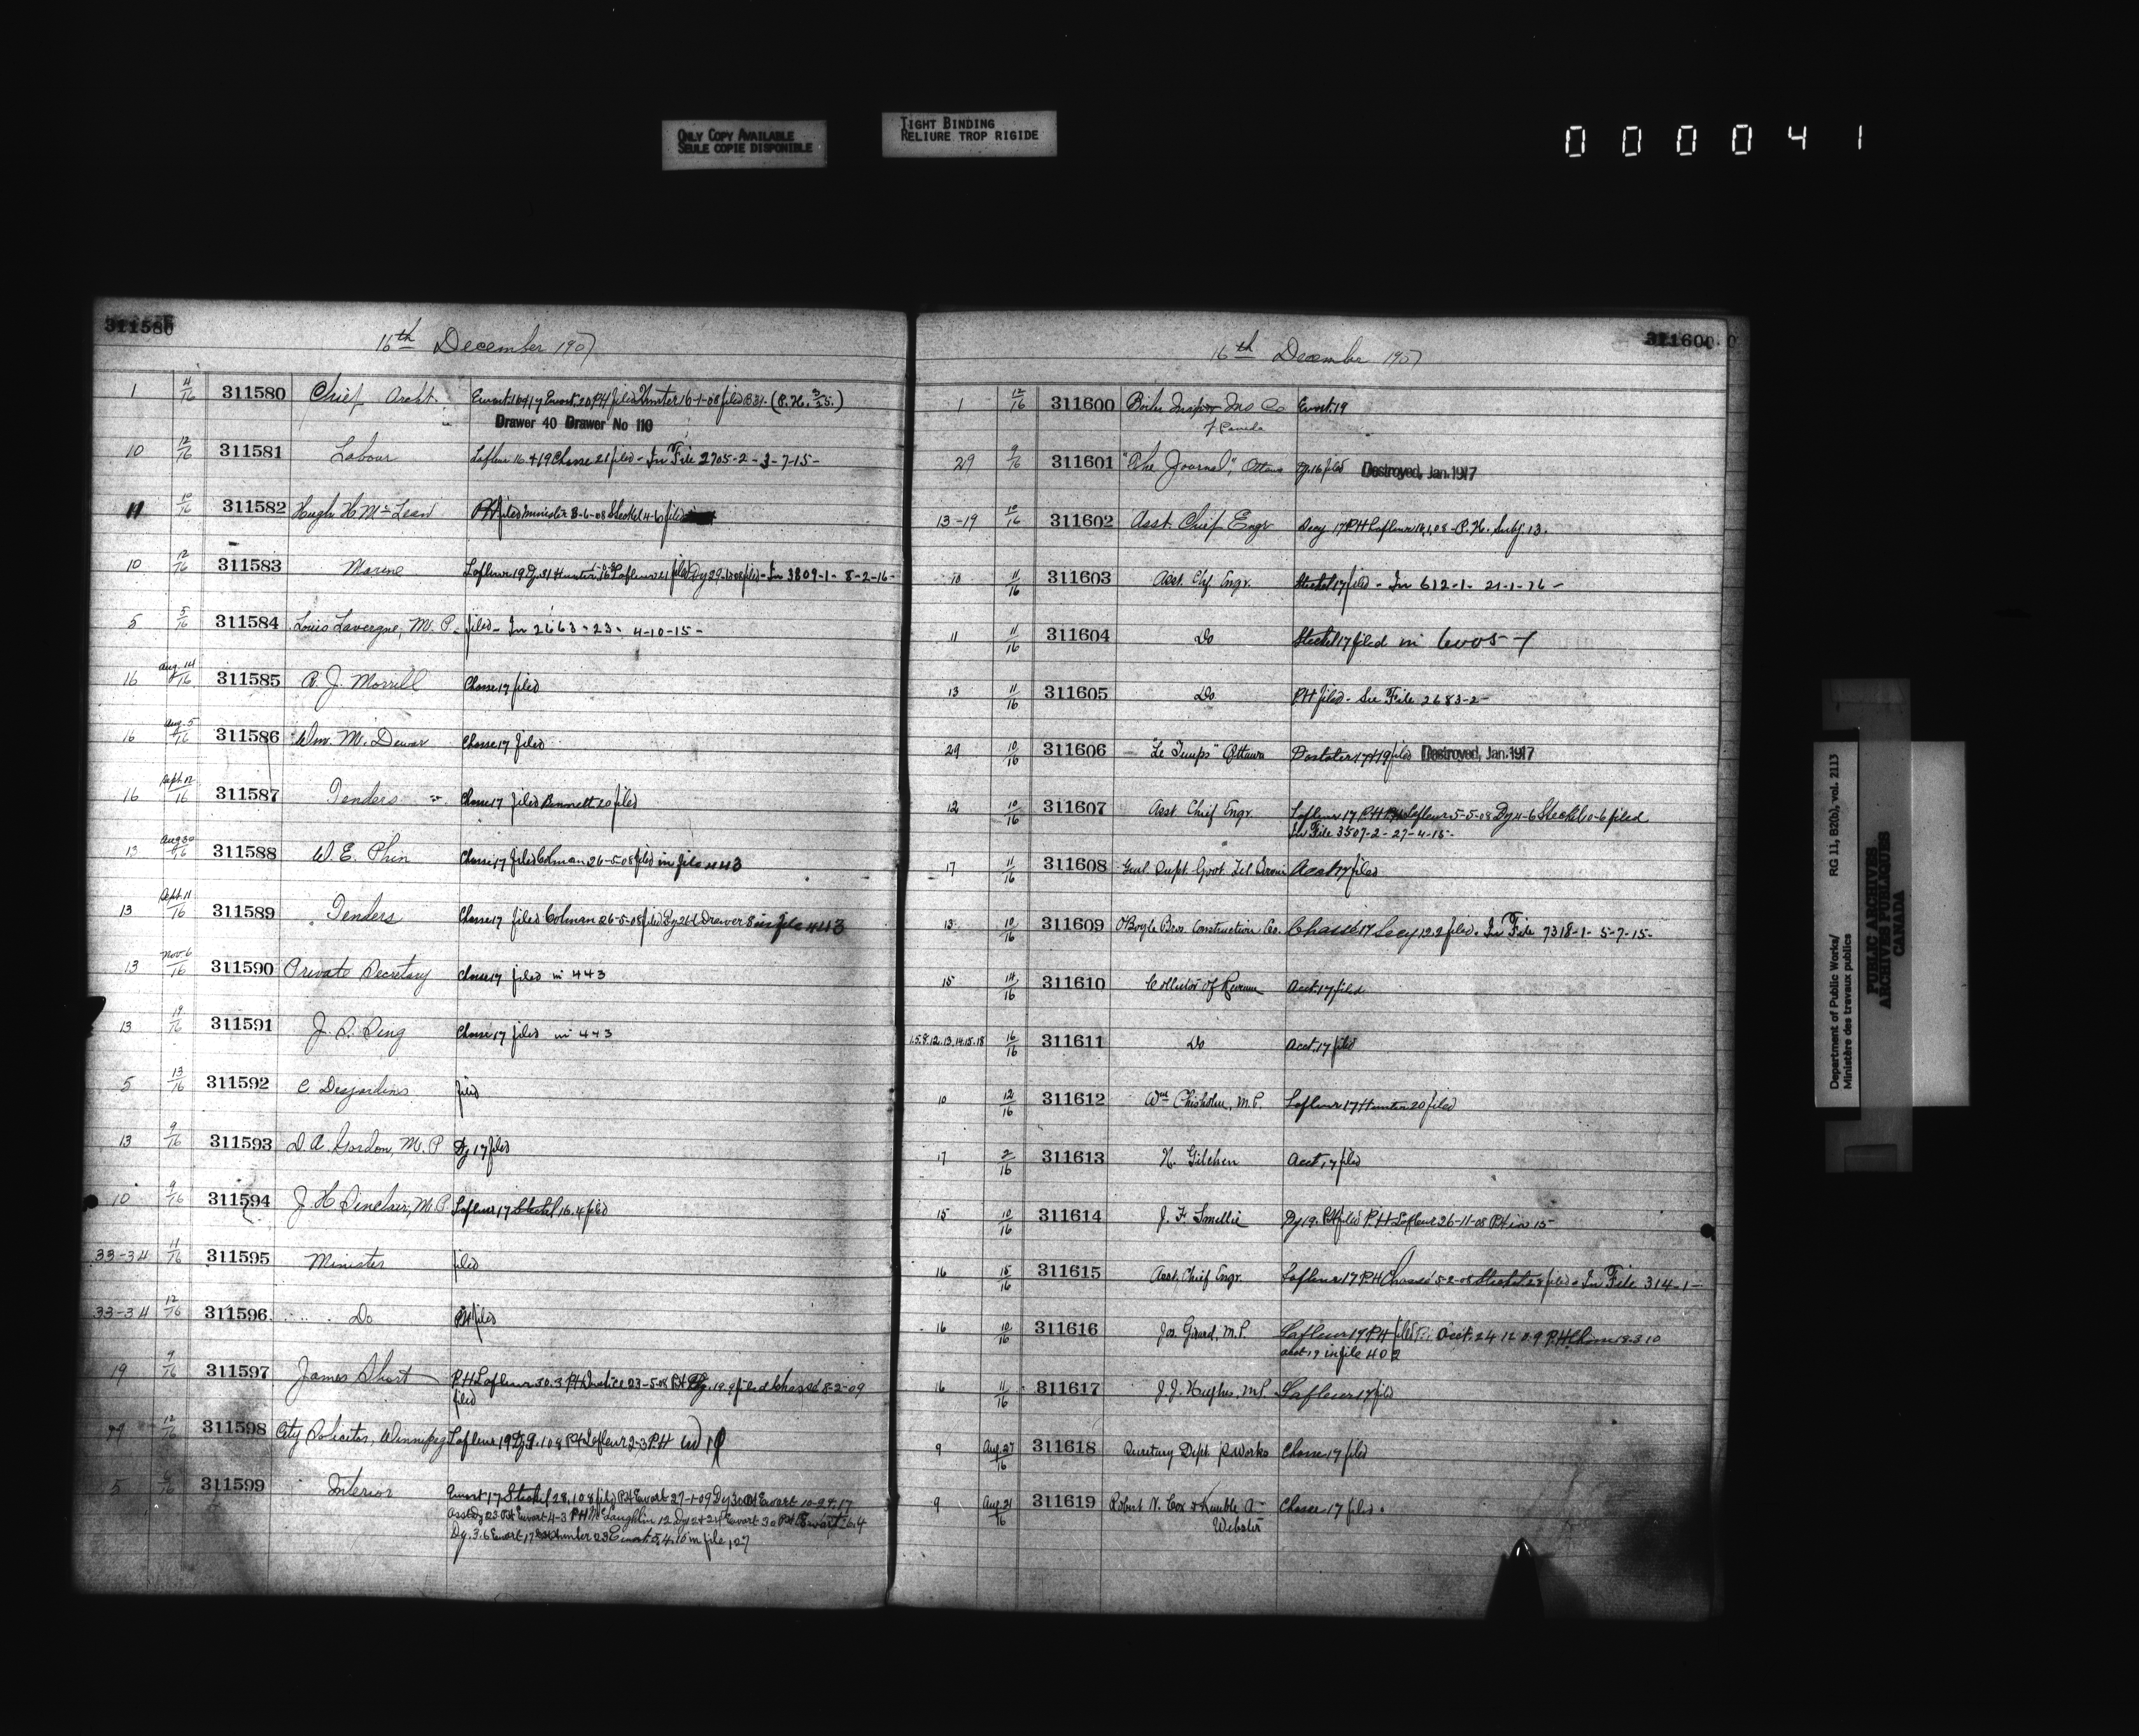 ONLY COPY AVAILABLE
SEULE COPIE DISPONIBLE
TIGHT BINDING
RELIURE TROP RIGIDE
000041
311580
16th December 1907
1 4/16 311580 Chief Archt. Ewart 16 & 17 Ewart 20 PH filed Hunter 16-1-08 filed
Drawer 40 Drawer No 110
10 12/16 311581 Labour Lafleur 16 & 19 Chasse 21 filed - In File 2705-2-3-7-15-
11 10/16 311582 Hugh H McLean PH filed Minister 3-6-08 Steckel 4-6 filed
10 12/16 311583 Marine Lafleur 19 Dy 31 Hunter Lafleur 21 filed filed - In 3809-1- 8-2-16-
5 5/16 311584 Louis Lavergne, M.P. filed - In 2663-23- 4-10-15-
16 Aug. 14/16 311585 R. J. Morrill Chasse 17 filed
16 Aug. 5/16 311586 Wm. M. Dewar Chasse 17 filed
16 Sept. 12/16 311587 Tenders Chasse 17 filed Bennett 20 filed
13 Aug 30/16 311588 W. E. Phin Chasse 17 filed Colman 26-5-08 filed in file 443
13 Sept. 11/16 311589 Tenders Chasse 17 filed Colman 26-5-08 filed Drawer 8 in file 443
13 Nov. 6/16 311590 Private Secretary Chasse 17 filed in 443
13 19/16 311591 Chasse 17 filed in 443
5 13/16 311592 C. Desjardins filed
13 9/16 311593 D. A. Gordon, M.P. Dy 17 filed
10 9/16 311594 J. H. Sinclair, M.P. Lafleur 17 Steckel 16.4 filed
33-34 11/16 311595 Minister filed
33-34 12/16 311596 Do PH filed
19 9/16 311597 James Short PH Lafleur 30.3 PH Justice 23-5-08 PH filed Chassé 8-2-09
filed
12/16 311598 City Solicitor, Winnipeg Lafleur 19 PH Lafleur 2-3 PH
5 311599 Interior Ewart 17 Steckel 28.1.08 filed PH Ewart 27-1-09 Ewart
PH Ewart 4-3 PH McLaughlin 12 Ewart
Dy. 3.6 Ewart 17 Hunter 23 Ewart in file 127
311600
16th December 1907
1 12/16 311600 Boiler Inspn Ins Co Ewart 19
of Canada
29 9/16 311601 "The Journal", Ottawa Dy. 16 filed Destroyed, Jan. 1917
13-19 10/16 311602 Asst. Chief Engr Secy 17 PH Lafleur P.H. Subj. 13.
10 11/16 311603 Asst. Chf. Engr. Steckel 17 filed - In 612-1- 21-1-16-
11 11/16 311604 Do Steckel 17 filed in 6005-1
13 11/16 311605 Do PH filed - See File 2683-2-
29 10/16 311606 "Le Temps" Ottawa 17 & 19 filed Destroyed, Jan. 1917
12 10/16 311607 Asst Chief Engr. Lafleur 17 P.H Lafleur 5-5-08 Dy 4-6 Steckel 10-6 filed
In File 3507-2- 27-4-15-
17 11/16 311608 Genl. Supt. Govt. Tel. Service Acct 17 filed
13 10/16 311609 O'Boyle Bros. Construction Co. Chassé 17 Secy 19.2 filed. In File 7318-1- 5-7-15-
15 14/16 311610 Collector of Revenue Acct. 17 filed
1.5.8.12.13.14.15.18 16/16 311611 Do Acct. 17 filed
10 12/16 311612 Wm Chisholm, M.P. Lafleur 17 Hunter 20 filed
17 2/16 311613 Acct 17 filed
15 10/16 311614 J. F. Smellie Dy 19. PH filed P.H Lafleur 26-11-08 PH in 15-
16 15/16 311615 Asst. Chief Engr. Lafleur 17 P.H Chassé 5-2-08 Steckel filed - In File 314-1-
16 10/16 311616 Jos. Girard, M.P. Lafleur 17 P.H filed Acct. 24 12 09 P.H
acct 19 in file 402
16 11/16 311617 J. J. Hughes, M.P. Lafleur 17 filed
9 Aug. 27/16 311618 Secretary Dept. P. Works Chasse 17 filed
9 Aug 21/16 311619 Robert N. Cox & Kimble A
Webster Chasse 17 filed.
Department of Public Works/ RG 11, B2(b), vol. 2113
Ministère des travaux publics
PUBLIC ARCHIVES
ARCHIVES PUBLIQUES
CANADA